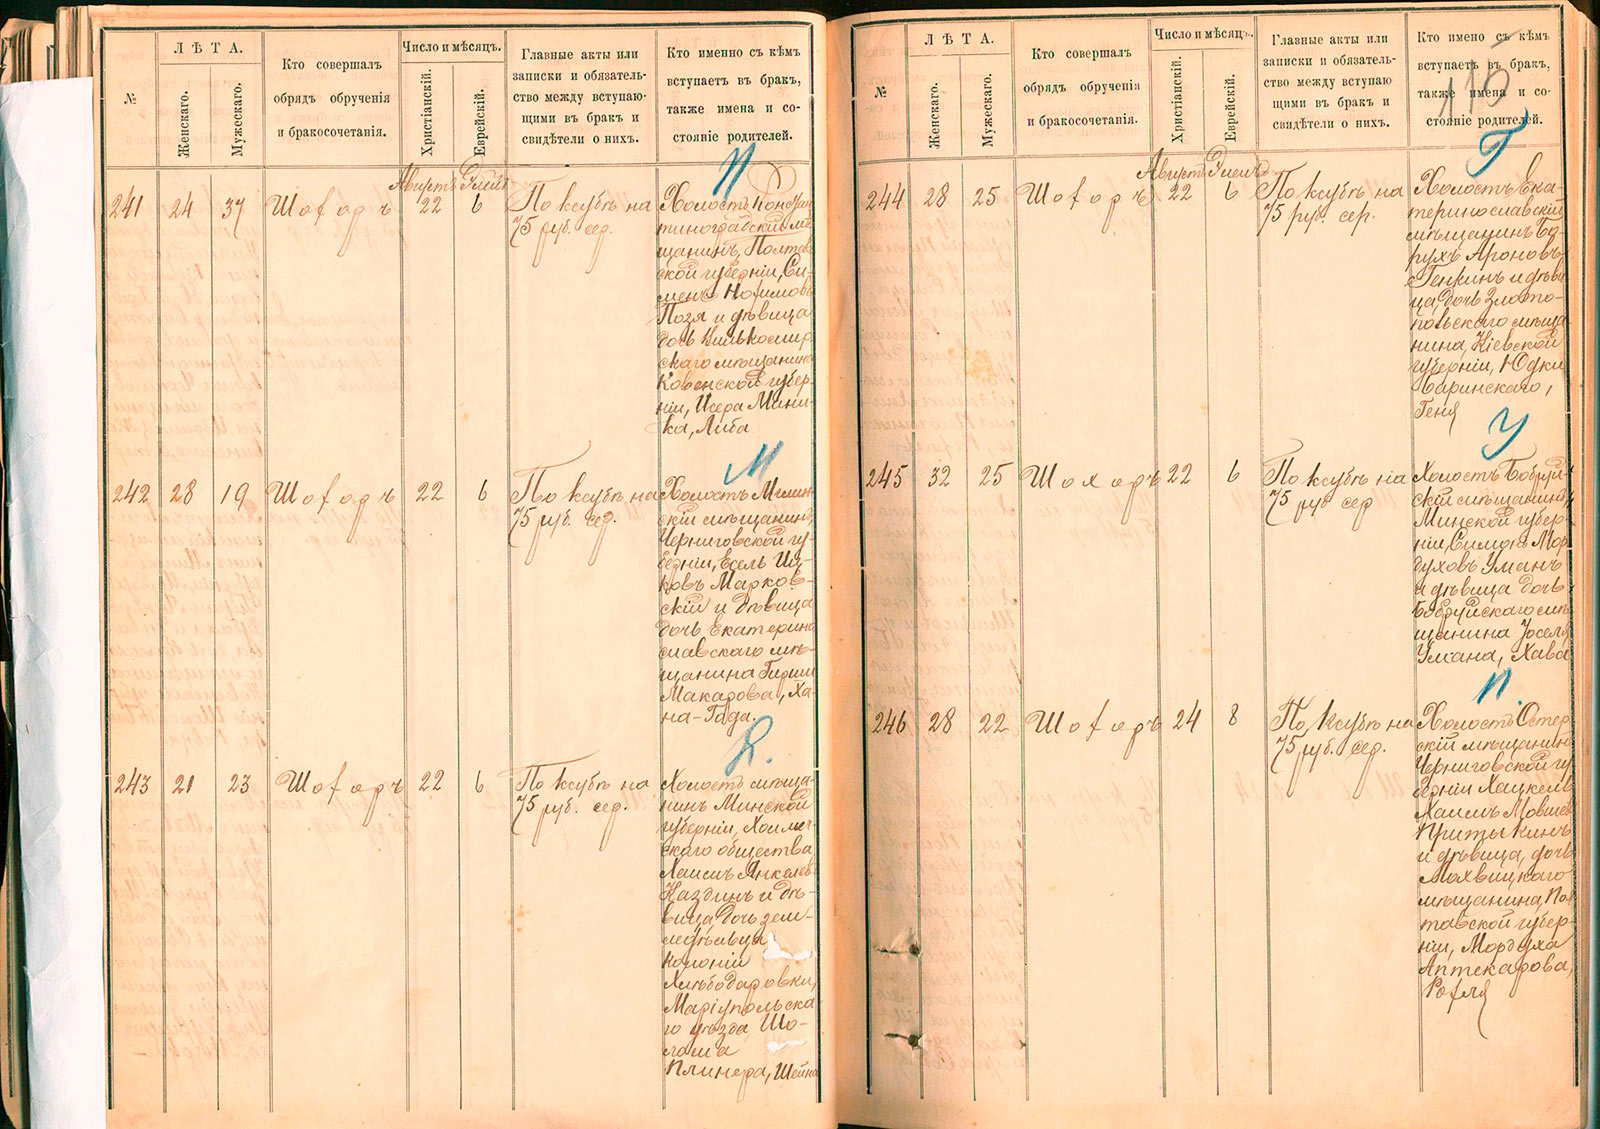 №
ЛѢТА.
Женскаго.
Мужескаго.
Кто совершалъ
обрядъ обрученія
и бракосочетанія.
Число и мѣсяцъ.
Христіанскій.
Еврейскій.
Главные акты или
записки и обязатель-
ство между вступаю-
щими въ бракъ и
свидѣтели о нихъ.
Кто именно съ кѣмъ
вступаетъ въ бракъ,
также имена и со-
стояніе родителей.
П
Августъ
241 24 37 Шохоръ 22 6
По ксубѣ на
75 руб. сер.
Холостъ Конста
тиноградскій мѣ
щанинъ, Полтав
ской губерніи, Си-
менъ Нохимовъ
Позя и дѣвица
дочь Вилькомир
скаго мѣщанина
Ковенской губер-
ніи, Исера Мани-
ка, Либа
М
242 28 19 Шохоръ 22 6
По ксубѣ на
75 руб. сер.
Холостъ Мглин-
скій мѣщанинъ,
Черниговской гу-
берніи, Есель Иц-
ковъ Марков-
скій и дѣвица
дочь Екатерино
славскаго мѣ-
щанина Гирши
Макарова, Ха-
на-Года.
К.
243 21 23 Шохоръ 22 6
По ксубѣ на
75 руб. сер.
Холостъ мѣща-
нинъ Минской
губерніи,
скаго общества
Хаимъ Янкелевъ
Каздинъ и дѣ-
вица дочь зем-
ледѣльца
колоніи
Хлѣбодаровки,
Маріупольска
го уѣзда, Шо-
лома
Плинера, Шейна
№
ЛѢТА.
Женскаго.
Мужескаго.
Кто совершалъ
обрядъ обрученія
и бракосочетанія.
Число и мѣсяцъ.
Христіанскій.
Еврейскій.
Главные акты или
записки и обязатель-
ство между вступаю
щими въ бракъ и
свидѣтели о нихъ.
Кто имено съ кѣмъ
вступаетъ въ бракъ,
также имена и со-
стояніе родителей.
Г
Августъ
244 28 25 Шохоръ 22 6
По ксубѣ на
75 руб. сер.
Холостъ Ека-
теринославскій
мѣщанинъ Бо-
рухъ Ароновъ
Генкинъ и дѣви
ца, дочь Злато-
польскаго мѣща
нина, Кіевской
губерніи, Юдки
Баринскаго,
Геня
У
245 32 25 Шохоръ 22 6
По ксубѣ на
75 руб сер
Холостъ Бобруй-
скій мѣщанинъ,
Минской губер-
ніи, Симонъ Мор
духовъ Уманъ
и дѣвица дочь
Бобруйскаго мѣ
щанина Іоселя
Умана, Хава
П.
246 28 22 Шохоръ 24 8
По ксубѣ на
75 руб. сер.
Холостъ Остер
скій мѣщанинъ
Черниговской гу
берніи Хацкель
Хаимъ Мовшевъ
Притыкинъ
и дѣвица, дочь
Лохвицкаго
мѣщанина, Пол
тавской губер-
ніи, Мордуха
Аптекарова,
Рохля